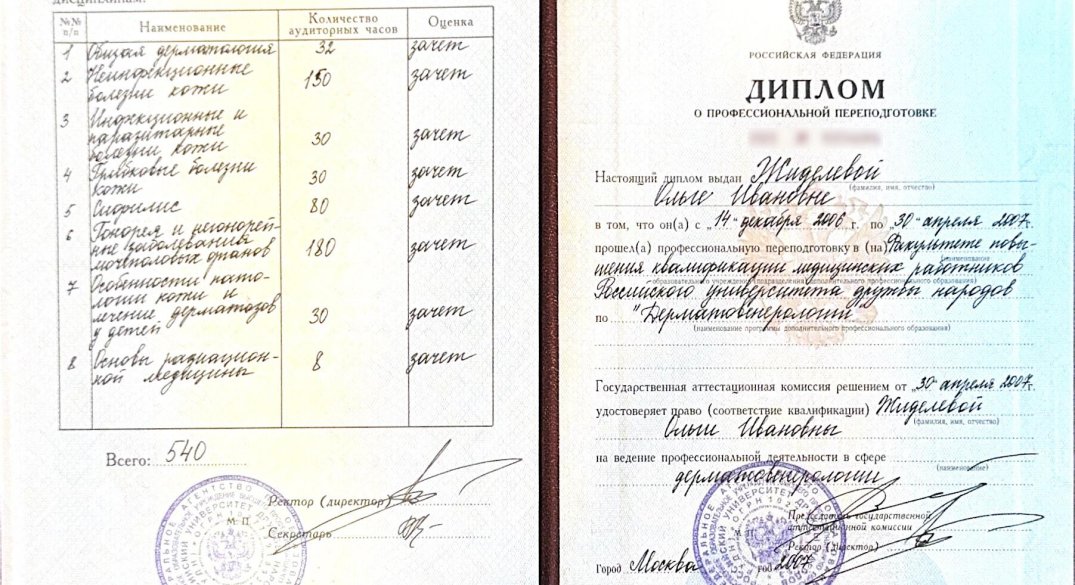 дисциплинам:
№№ п/п
Наименование
Количество аудиторных часов
Оценка
1 Общая дерматология 32 зачет
2 Неинфекционные
болезни кожи 150 зачет
3 Инфекционные и
паразитарные
болезни кожи 30 зачет
4 Грибковые болезни
кожи 30 зачет
5 Сифилис 80 зачет
6 Гонорея и негонорей-
ные заболевания
мочеполовых органов 180 зачет
7 Особенности пато-
логии кожи и
лечение дерматозов
у детей 30 зачет
8 Основы радиацион-
ной медицины 8 зачет
Всего: 540
Ректор (директор)
М П
Секретарь
РОССИЙСКАЯ ФЕДЕРАЦИЯ
ДИПЛОМ
О ПРОФЕССИОНАЛЬНОЙ ПЕРЕПОДГОТОВКЕ
Настоящий диплом выдан Жиделевой
(фамилия, имя, отчество)
Ольге Ивановне
в том, что он(а) с „14“ декабря 2006 г. по „30“ апреля 2007 г.
прошел(а) профессиональную переподготовку в (на) Факультете повы-
(наименование
шения квалификации медицинских работников
образовательного учреждения (подразделения) дополнительного профессионального образования)
Российского университета дружбы народов
по "Дерматовенерологии"
(наименование программы дополнительного профессионального образования)
Государственная аттестационная комиссия решением от „30“ апреля 2007 г.
удостоверяет право (соответствие квалификации) Жиделевой
(фамилия, имя, отчество)
Ольги Ивановны
на ведение профессиональной деятельности в сфере
(наименование)
дерматовенерологии
Председатель государственной
аттестационной комиссии
Ректор (директор)
Город Москва год 2007